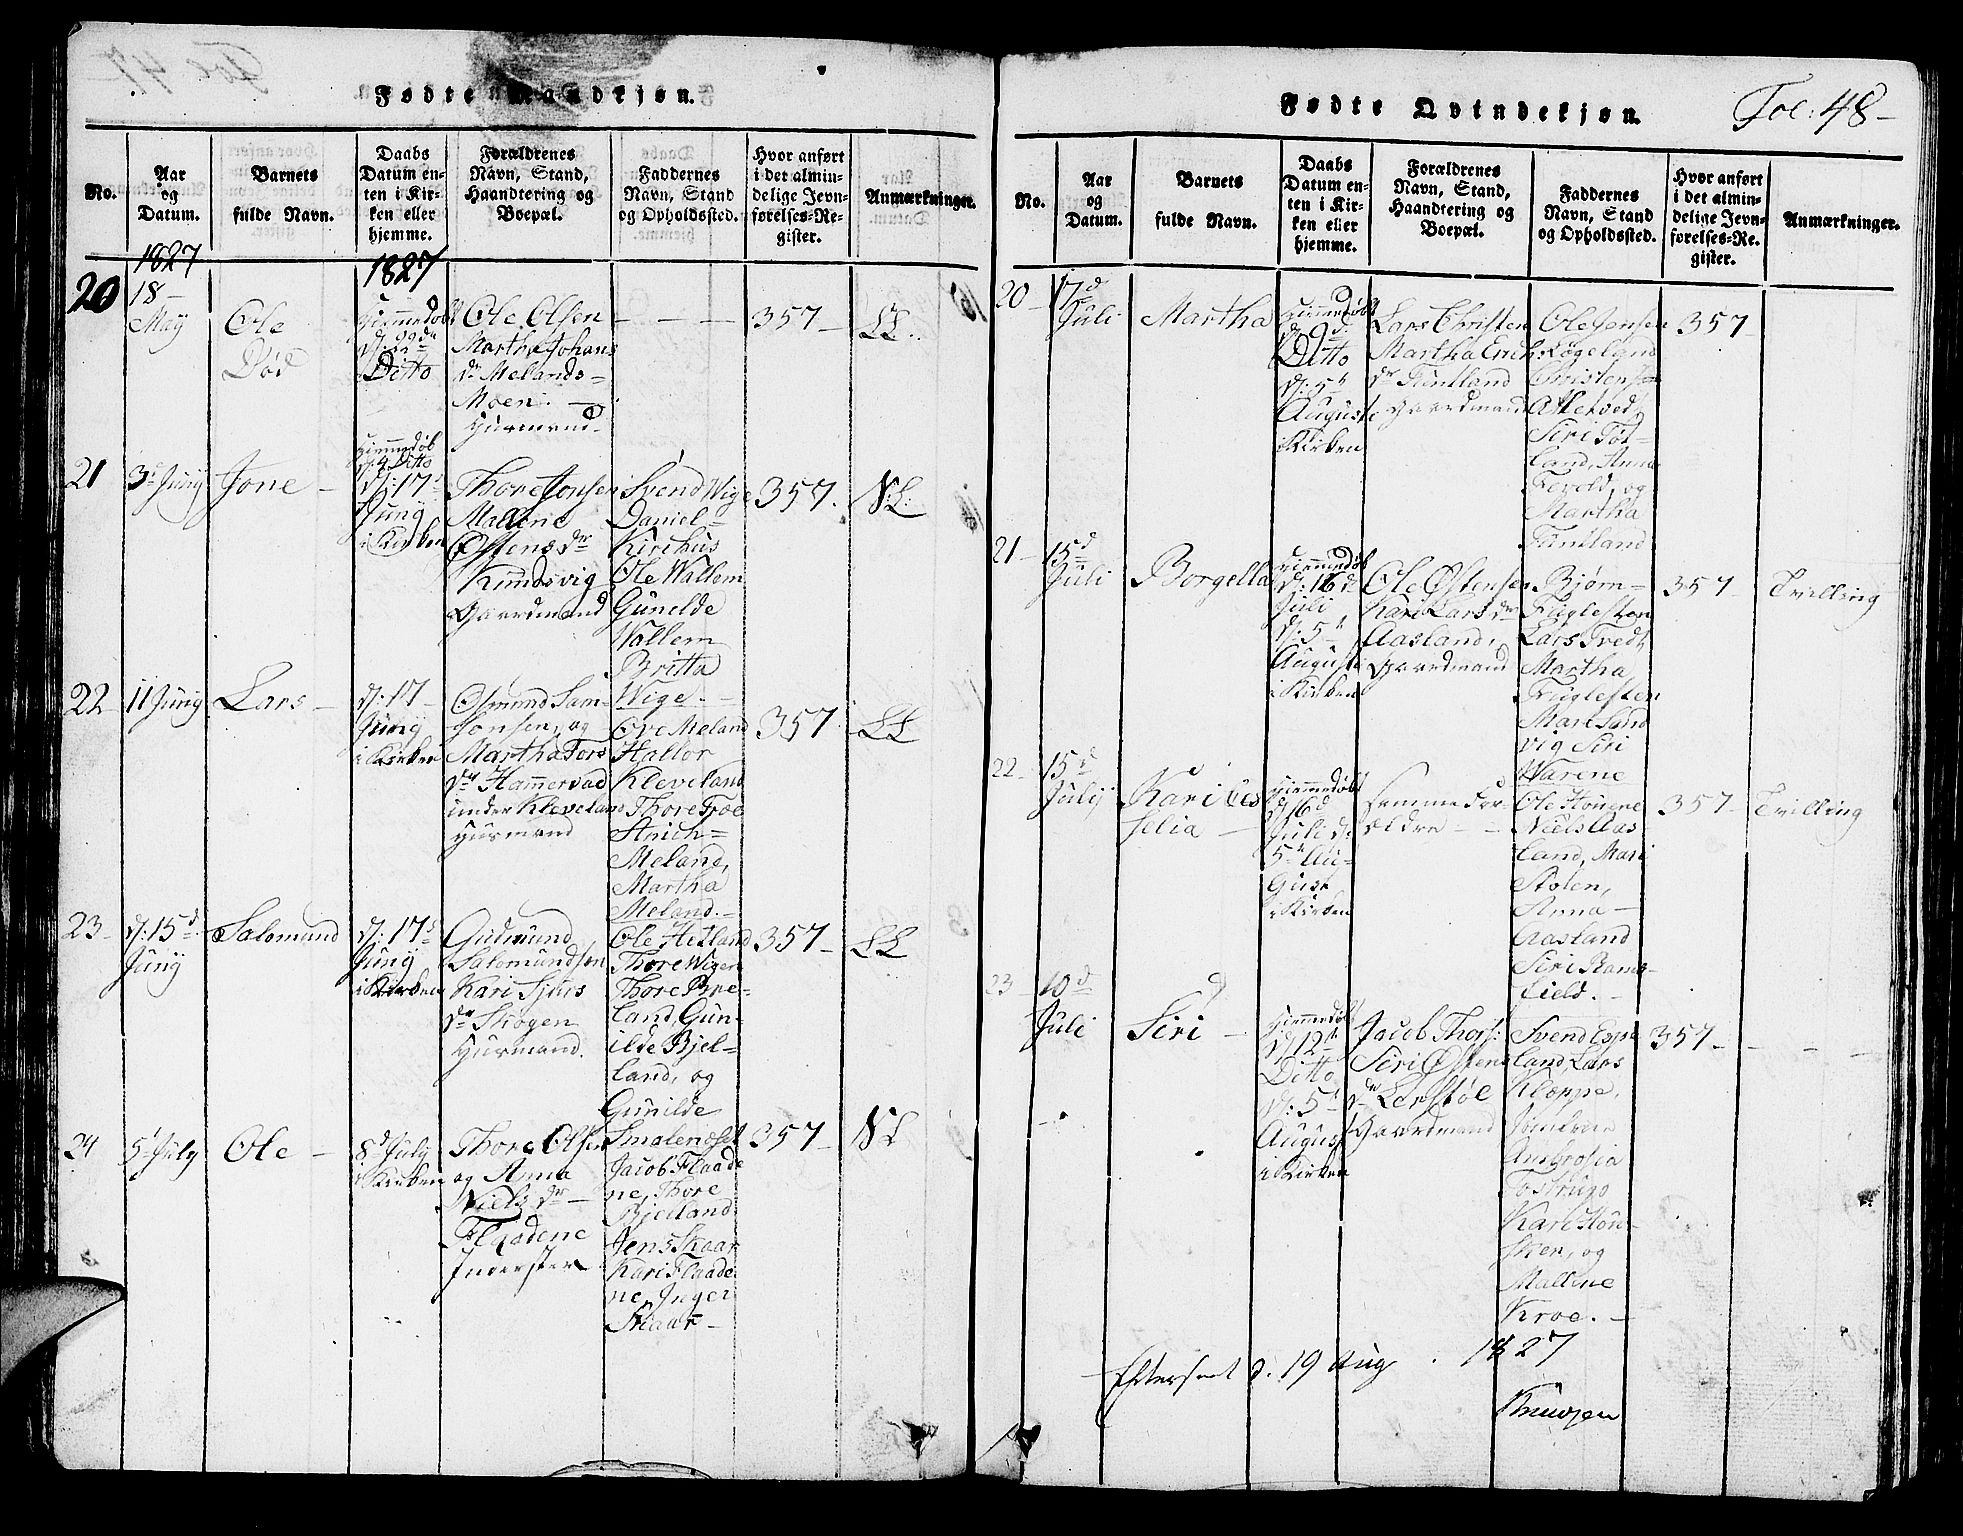 Fødte Mandkjøn.
No.
Aar
og
Datum.
Barnets
fulde Navn.
Daabs
Datum en-
ten i Kir-
ken eller
hjemme.
Forældrenes
Navn, Stand,
Haandtering og
Boepæl.
Faddernes
Navn, Stand
og Opholdssted.
Hvor anført
i det almin-
delige Jevn-
førelses-Re-
gister.
Anmærkninger.
1827
1827
20
18-
May
Ole
Død
Ditto
Ole Olsen
Martha Johans
dr Melands-
Moen.
Huusmand.
357-
LL.
21
3d Junij
Jone-
Hjemmedøb
d: 4 Ditto
d: 17d
Junij
i Kirken
Thore Jonsen
Mallene
Østens dr
Kundsvig
Gaardmand
Svend Wige
Daniel-
Kirchus
Ole Wallem
Gunilde
Wallem
Britta
Wige.-
357.
NL.
22
11 Junij
Lars-
d: 17-
Junij
i Kirken
Osmund Sam-
sonsen, og
Martha Tors
dr Hammersad
under Kleveland
Huusmand
Ove Meland
Hallor
Kleveland
Thore Froe
Meland,
Martha
Meland.-
357.
LL
23-
d: 15d
Junij
Salomund
d: 17d
Junij
i Kirken
Gudmund
Salomundsen
Kari Sjurs
dr Skogen
Huusmand.
Ole Hetland
Thore Wigen
Thore Bre-
land, Gun-
ilde Bjel-
land, og
Gunilde
Smalenæset
357-
LL
24
5t July
Ole-
8d July
i Kirken
Thore Olsen
og Anna
Niels dr-
Flaadene
Inderster
Jacob Flaade
ne, Thore
Bjelland
Jens Skaar
Kari Flaade
ne, Inger
Skaar-
357-
NL
Fødte Qvindekjøn.
Fol: 48-
No.
Aar
og
Datum.
Barnets
fulde Navn.
Daabs
Datum en-
ten i Kir-
ken eller
hjemme.
Forældrenes
Navn, Stand,
Haandtering og
Boepæl.
Faddernes
Navn, Stand
og Opholdssted.
Hvor anført
i det almin-
delige Jevn-
førelses-Re-
gister.
Anmærkninger.
20-
17d
Juli
Martha
Hjemmedøbt
Ditto
d: 5t
August
i Kirken
Lars Christen
Martha Erichs
dr Tuntland
Gaardmand
Ole Jensen
Christens
Siri Føt-
land, Anna
og
Martha
Tuntland
357-
21-
15d
Juli
Borgella
Hjemmedøbt
d: 16d
Juli
d: 5t
August
i Kirken
Ole Østensen
Kari Lars dr
Aasland,
Gaardmand
Bjørn-
Fuglesten
Lars Tvedt,
Martha
Fuglesten
Mari Sand
vig Siri
Warene
357-
Tvilling
22-
15d
Julij
Kari Ces
selia-
Hjemmedøbt
d 16d
Juli d:
5t Au-
gust
i Kirken
samme For-
ældre-
Ole Houene
Niels Aas
land, Mari
Stolen,
Anna-
Aasland
Siri Rams-
field.-
357-
Tvilling
23-
10d
Juli
Siri-
Hjemmedøbt
d 12t
Ditto
d: 5t
August
i Kirken
Jacob Thors:
Siri Østens
dr Lerstøl
Gaardmand
Svend Espe
land, Lars
Kloppe,
Ambrosia
Kari
og
Mallene
Kroe.-
357-
Efterseet d. 19 Aug. 1827
Knudsen